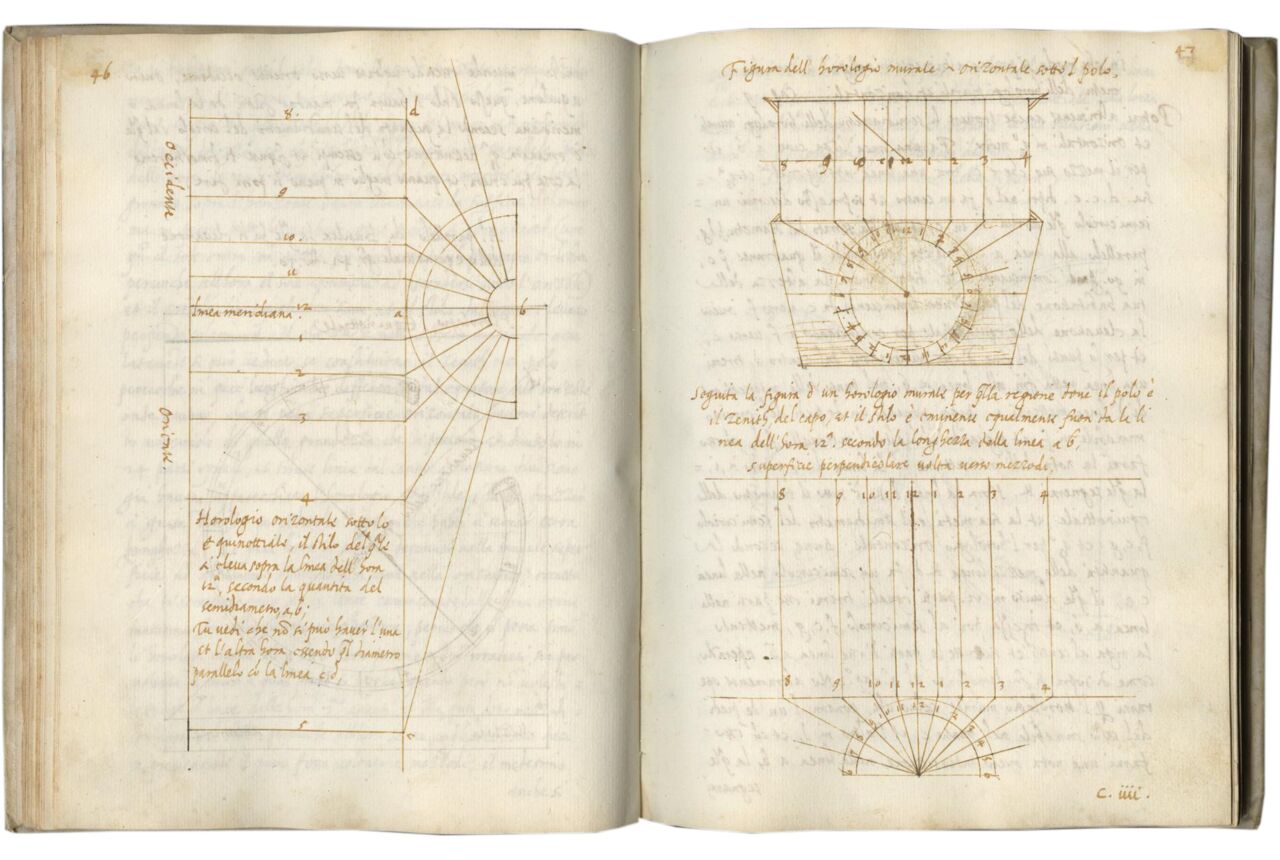 46
d
8.
Occidente
9
10.
11
12
linea meridiana
a
b
1
2
3
Oriente
4
Horologio orizontale sotto lo
equinottiale, il stilo del qle
si eleva sopra la linea dell hora
12ª, secondo la quantita del
semidiametro, a, b;
Tu vedi che nõ si può haver l'una
et l'altra hora essendo ql diametro
parallelo cõ la linea c d
5
c
47
Figura dell' horologio murale e orizontale sotto 'l polo,
8 9 10 11 12 1 2 3 4
Seguita la figura d' un horologio murale per qlla regione dove il polo è
il Zenith del capo, et il stilo è eminente equalmente fuori da la li
nea dell' hora 12ª. secondo la longhezza della linea a b,
superficie perpendicolare volta verso mezzodi,
8 9 10 11 12 1 2 3 4
8 9 10 11 12 1 2 3 4
C. iiii.